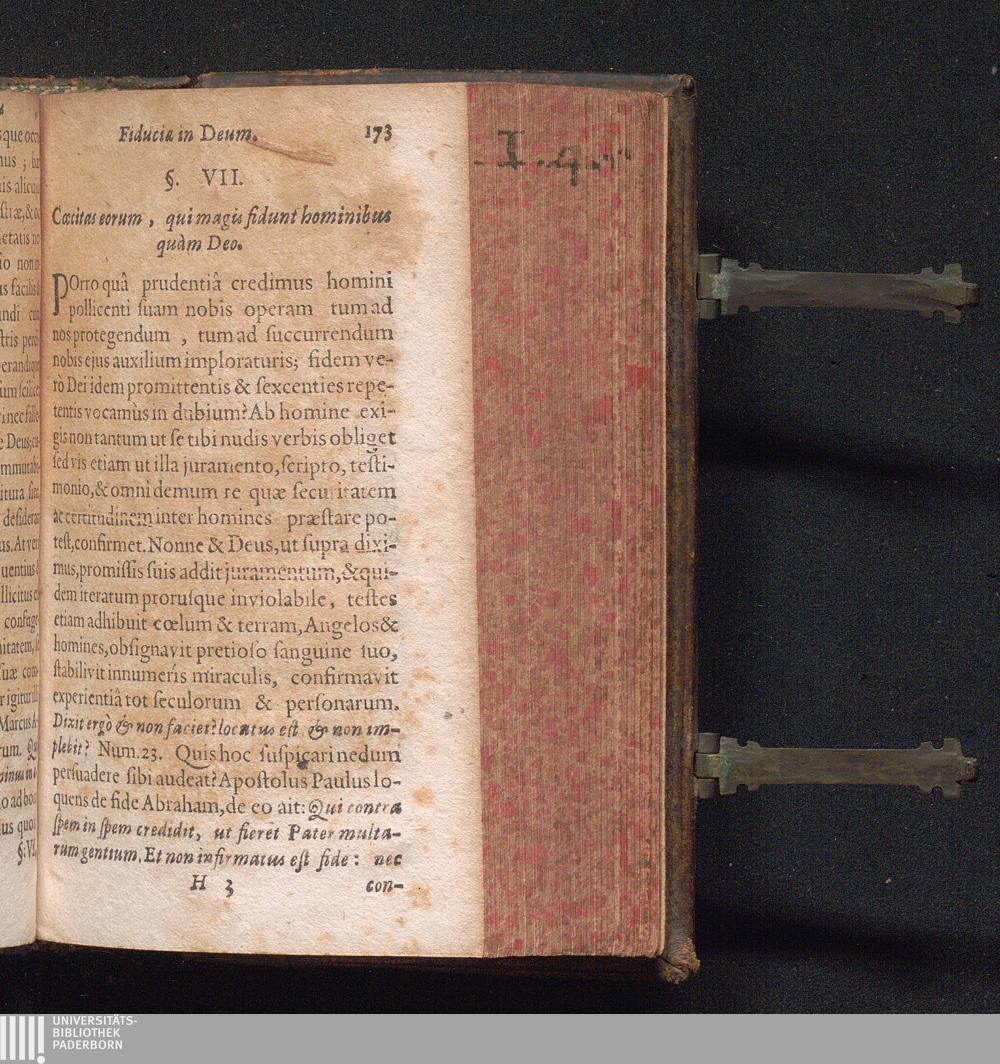 Fiducia in Deum. 173
§. VII.
Cæcitas eorum, qui magis fidunt hominibus
quàm Deo.
POrro quâ prudentiâ credimus homini
pollicenti ſuam nobis operam tum ad
nos protegendum, tum ad ſuccurrendum
nobis ejus auxilium imploraturis; fidem ve-
rò Dei idem promittentis & ſexcenties repe-
tentis vocamùs in dubium? Ab homine exi-
gis non tantum ut ſe tibi nudis verbis obliget
ſed vis etiam ut illa juramento, ſcripto, teſti-
monio, & omni demum re quæ ſecuritatem
ac certitudinem inter homines præſtare po-
teſt, confirmet. Nonne & Deus, ut ſupra dixi-
mus, promiſſis ſuis addit juramentum, & qui-
dem iteratum proruſque inviolabile, teſtes
etiam adhibuit cœlum & terram, Angelos &
homines, obſignavit pretioſo ſanguine ſuo,
ſtabilivit innumeris miraculis, confirmavit
experientiâ tot ſeculorum & perſonarum.
Dixit ergò & non faciet? locutus eſt & non im-
plebit? Num. 23. Quis hoc ſuſpicari nedum
perſuadere ſibi audeat? Apoſtolus Paulus lo-
quens de fide Abraham, de eo ait: Qui contra
ſpem in ſpem credidit, ut fieret Pater multa-
rum gentium. Et non infirmatus eſt fide: nec
H 3 con-
UNIVERSITÄTS-
BIBLIOTHEK
PADERBORN